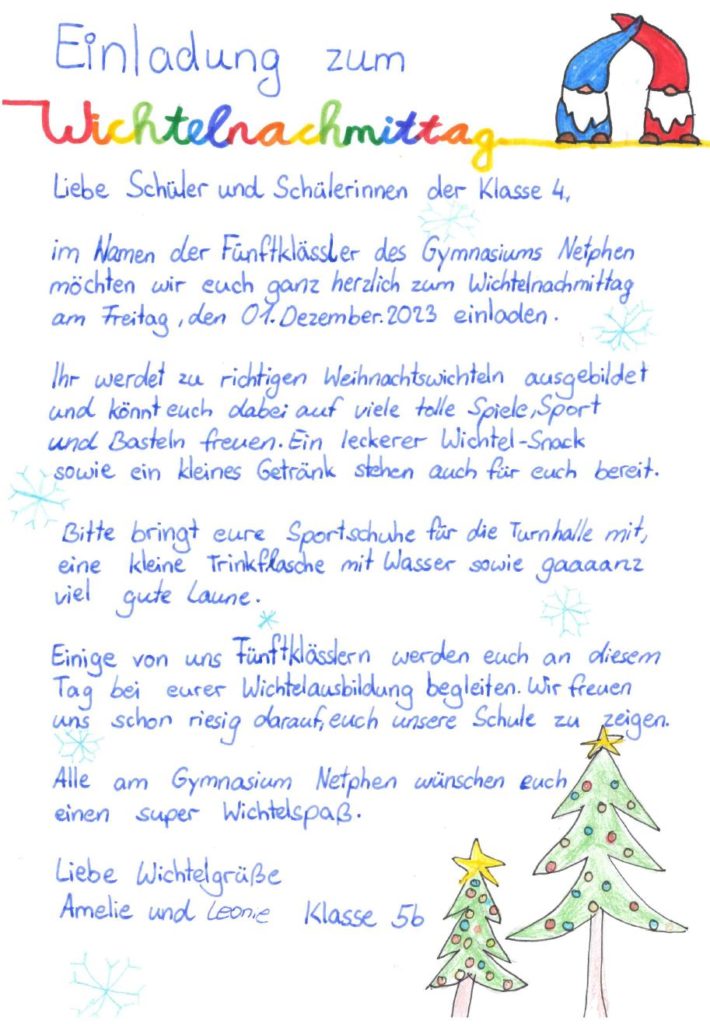 Einladung zum
Wichtelnachmittag
Liebe Schüler und Schülerinnen der Klasse 4,
im Namen der Fünftklässler des Gymnasiums Netphen
möchten wir euch ganz herzlich zum Wichtelnachmittag
am Freitag, den 01.Dezember.2023 einladen.
Ihr werdet zu richtigen Weihnachtswichteln ausgebildet
und könnt euch dabei auf viele tolle Spiele, Sport
und Basteln freuen. Ein leckerer Wichtel-Snack
sowie ein kleines Getränk stehen auch für euch bereit.
Bitte bringt eure Sportschuhe für die Turnhalle mit,
eine kleine Trinkflasche mit Wasser sowie gaaaanz
viel gute Laune.
Einige von uns Fünftklässlern werden euch an diesem
Tag bei eurer Wichtelausbildung begleiten. Wir freuen
uns schon riesig darauf, euch unsere Schule zu zeigen.
Alle am Gymnasium Netphen wünschen euch
einen super Wichtelspaß.
Liebe Wichtelgrüße
Amelie und Leonie Klasse 5b